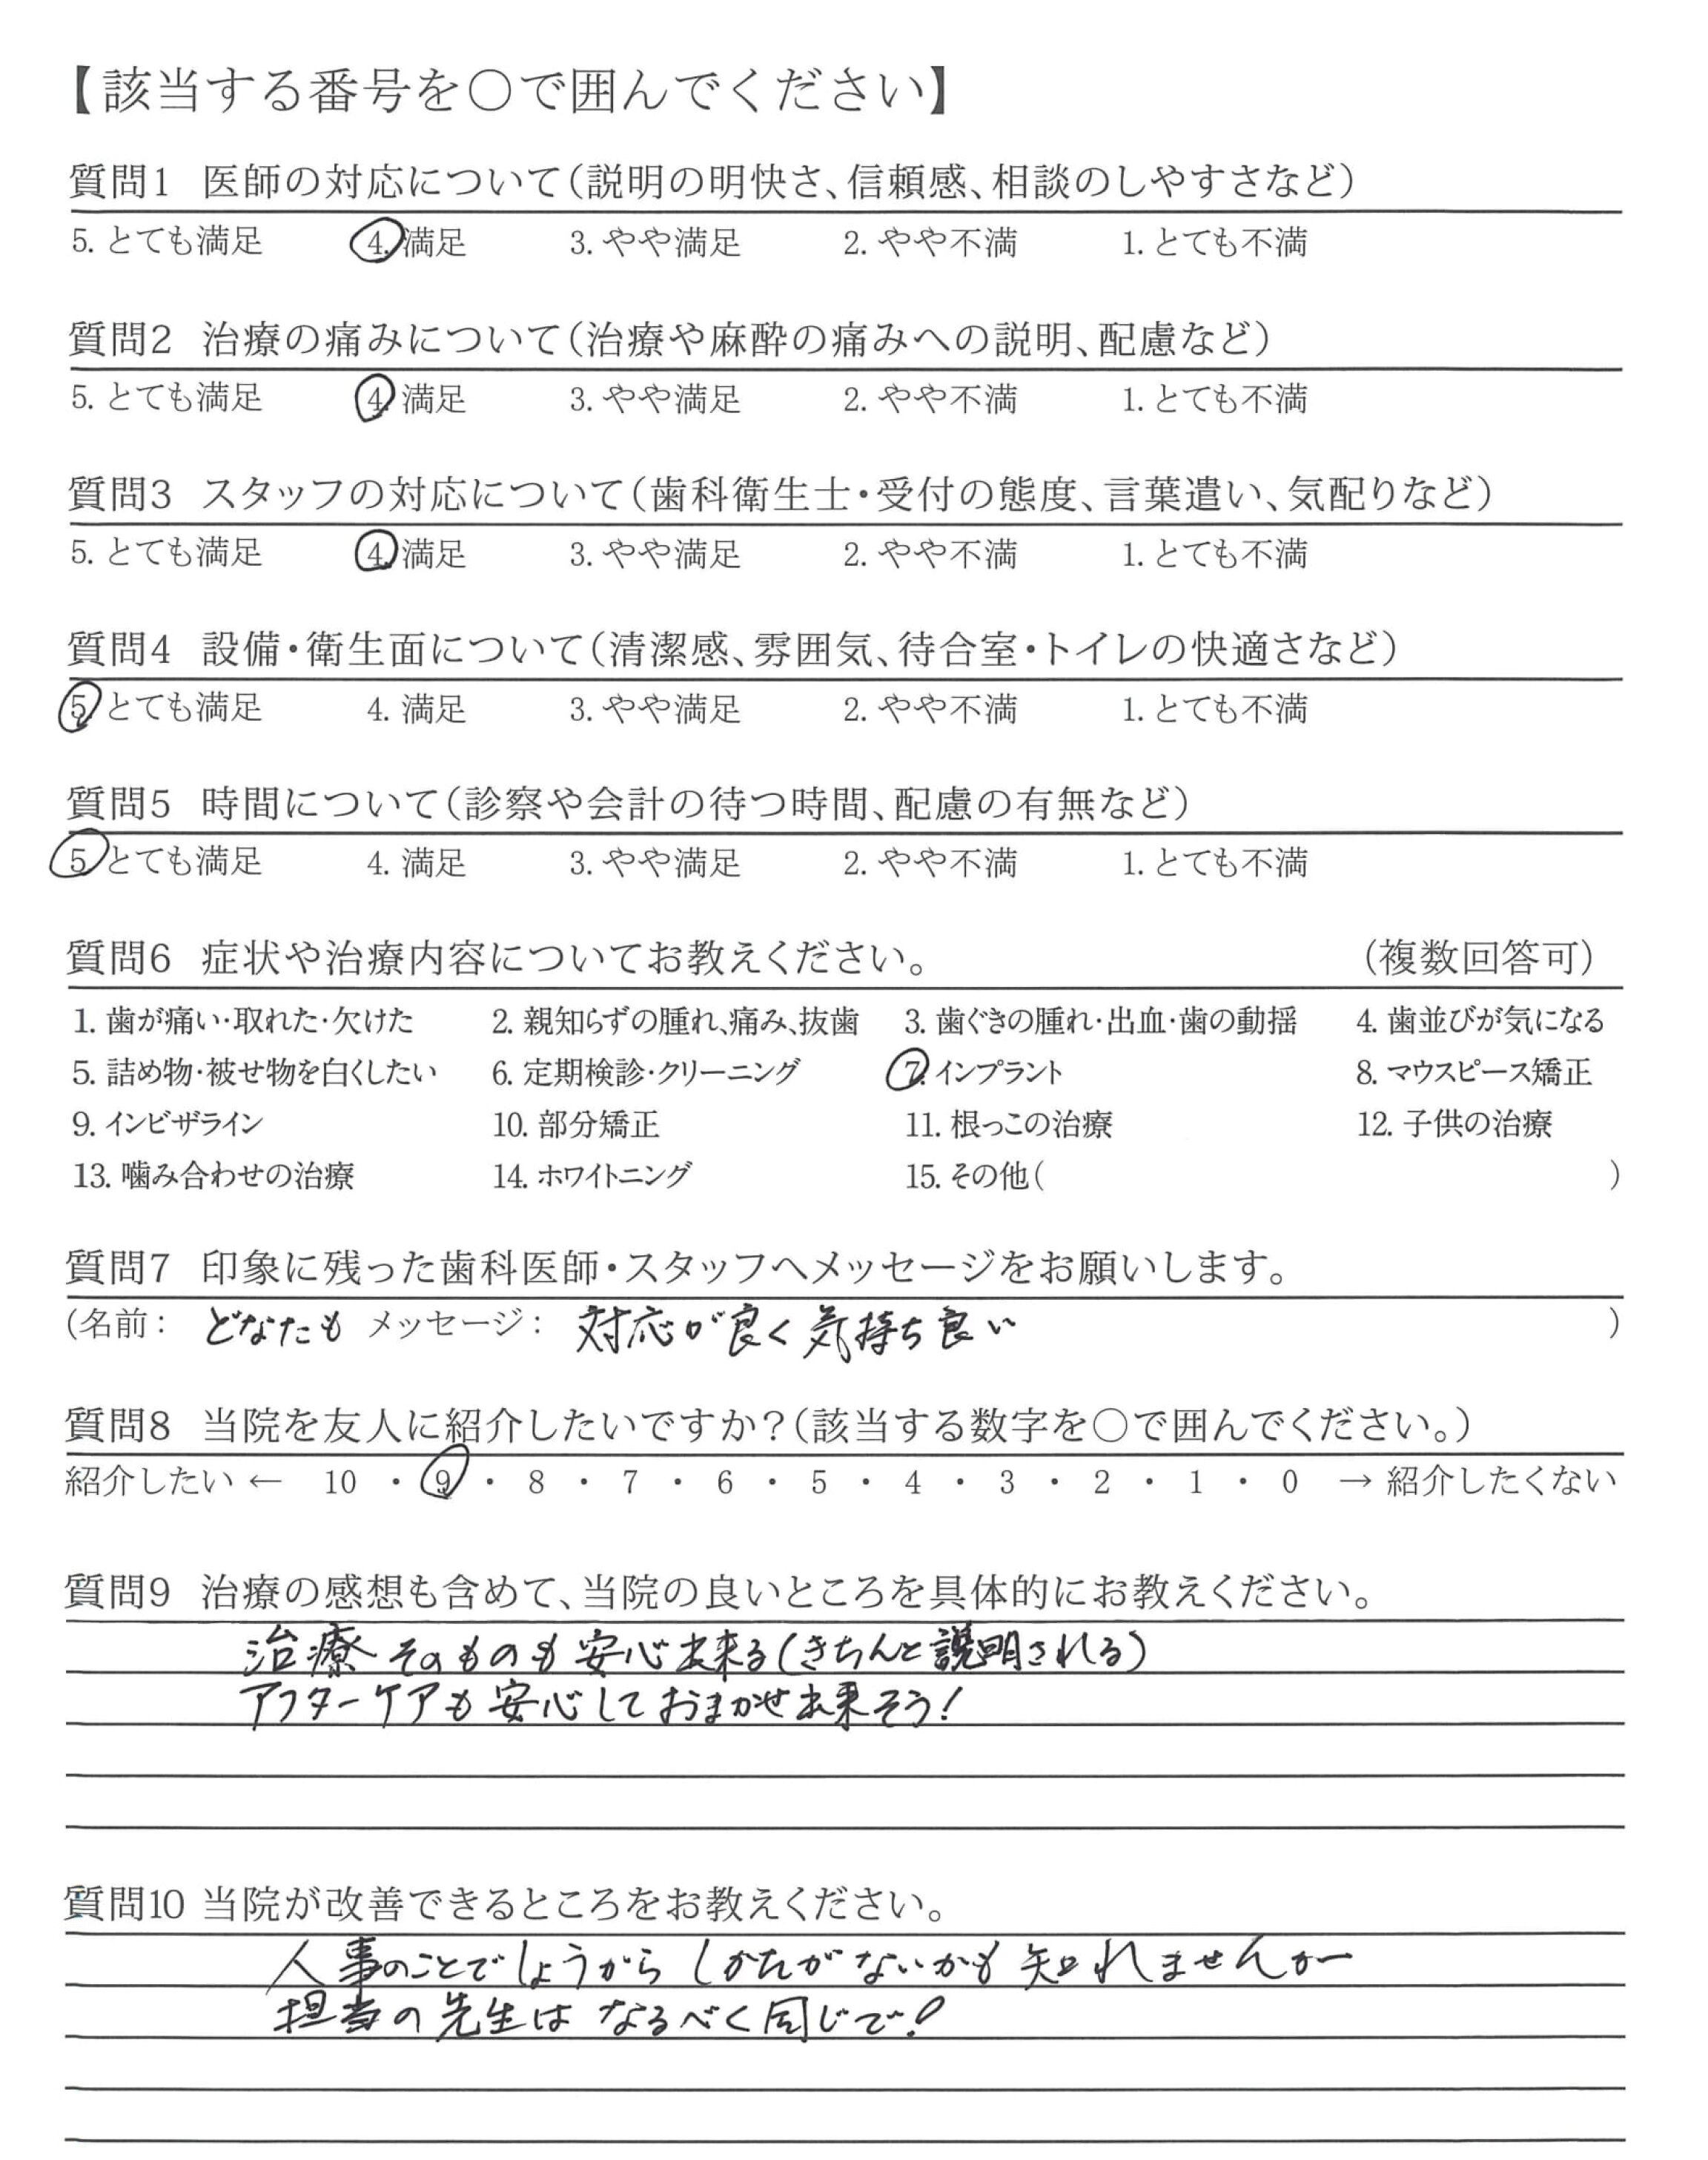 【該当する番号を○で囲んでください】
質問1 医師の対応について（説明の明快さ、信頼感、相談のしやすさなど）
5. とても満足 4. 満足 3. やや満足 2. やや不満 1. とても不満
質問2 治療の痛みについて（治療や麻酔の痛みへの説明、配慮など）
5. とても満足 4. 満足 3. やや満足 2. やや不満 1. とても不満
質問3 スタッフの対応について（歯科衛生士・受付の態度、言葉遣い、気配りなど）
5. とても満足 4. 満足 3. やや満足 2. やや不満 1. とても不満
質問4 設備・衛生面について（清潔感、雰囲気、待合室・トイレの快適さなど）
5. とても満足 4. 満足 3. やや満足 2. やや不満 1. とても不満
質問5 時間について（診察や会計の待つ時間、配慮の有無など）
5. とても満足 4. 満足 3. やや満足 2. やや不満 1. とても不満
質問6 症状や治療内容についてお教えください。 （複数回答可）
1. 歯が痛い・取れた・欠けた 2. 親知らずの腫れ、痛み、抜歯 3. 歯ぐきの腫れ・出血・歯の動揺 4. 歯並びが気になる
5. 詰め物・被せ物を白くしたい 6. 定期検診・クリーニング 7. インプラント 8. マウスピース矯正
9. インビザライン 10. 部分矯正 11. 根っこの治療 12. 子供の治療
13. 噛み合わせの治療 14. ホワイトニング 15. その他（ ）
質問7 印象に残った歯科医師・スタッフへメッセージをお願いします。
（名前： どなたも メッセージ： 対応が良く気持ち良い ）
質問8 当院を友人に紹介したいですか？（該当する数字を○で囲んでください。）
紹介したい ← 10 ・ 9 ・ 8 ・ 7 ・ 6 ・ 5 ・ 4 ・ 3 ・ 2 ・ 1 ・ 0 → 紹介したくない
質問9 治療の感想も含めて、当院の良いところを具体的にお教えください。
治療そのものも安心出来る（きちんと説明される）
アフターケアも安心しておまかせ出来そう！
質問10 当院が改善できるところをお教えください。
人事のことでしょうからしかたがないかも知れませんがー
担当の先生はなるべく同じで！